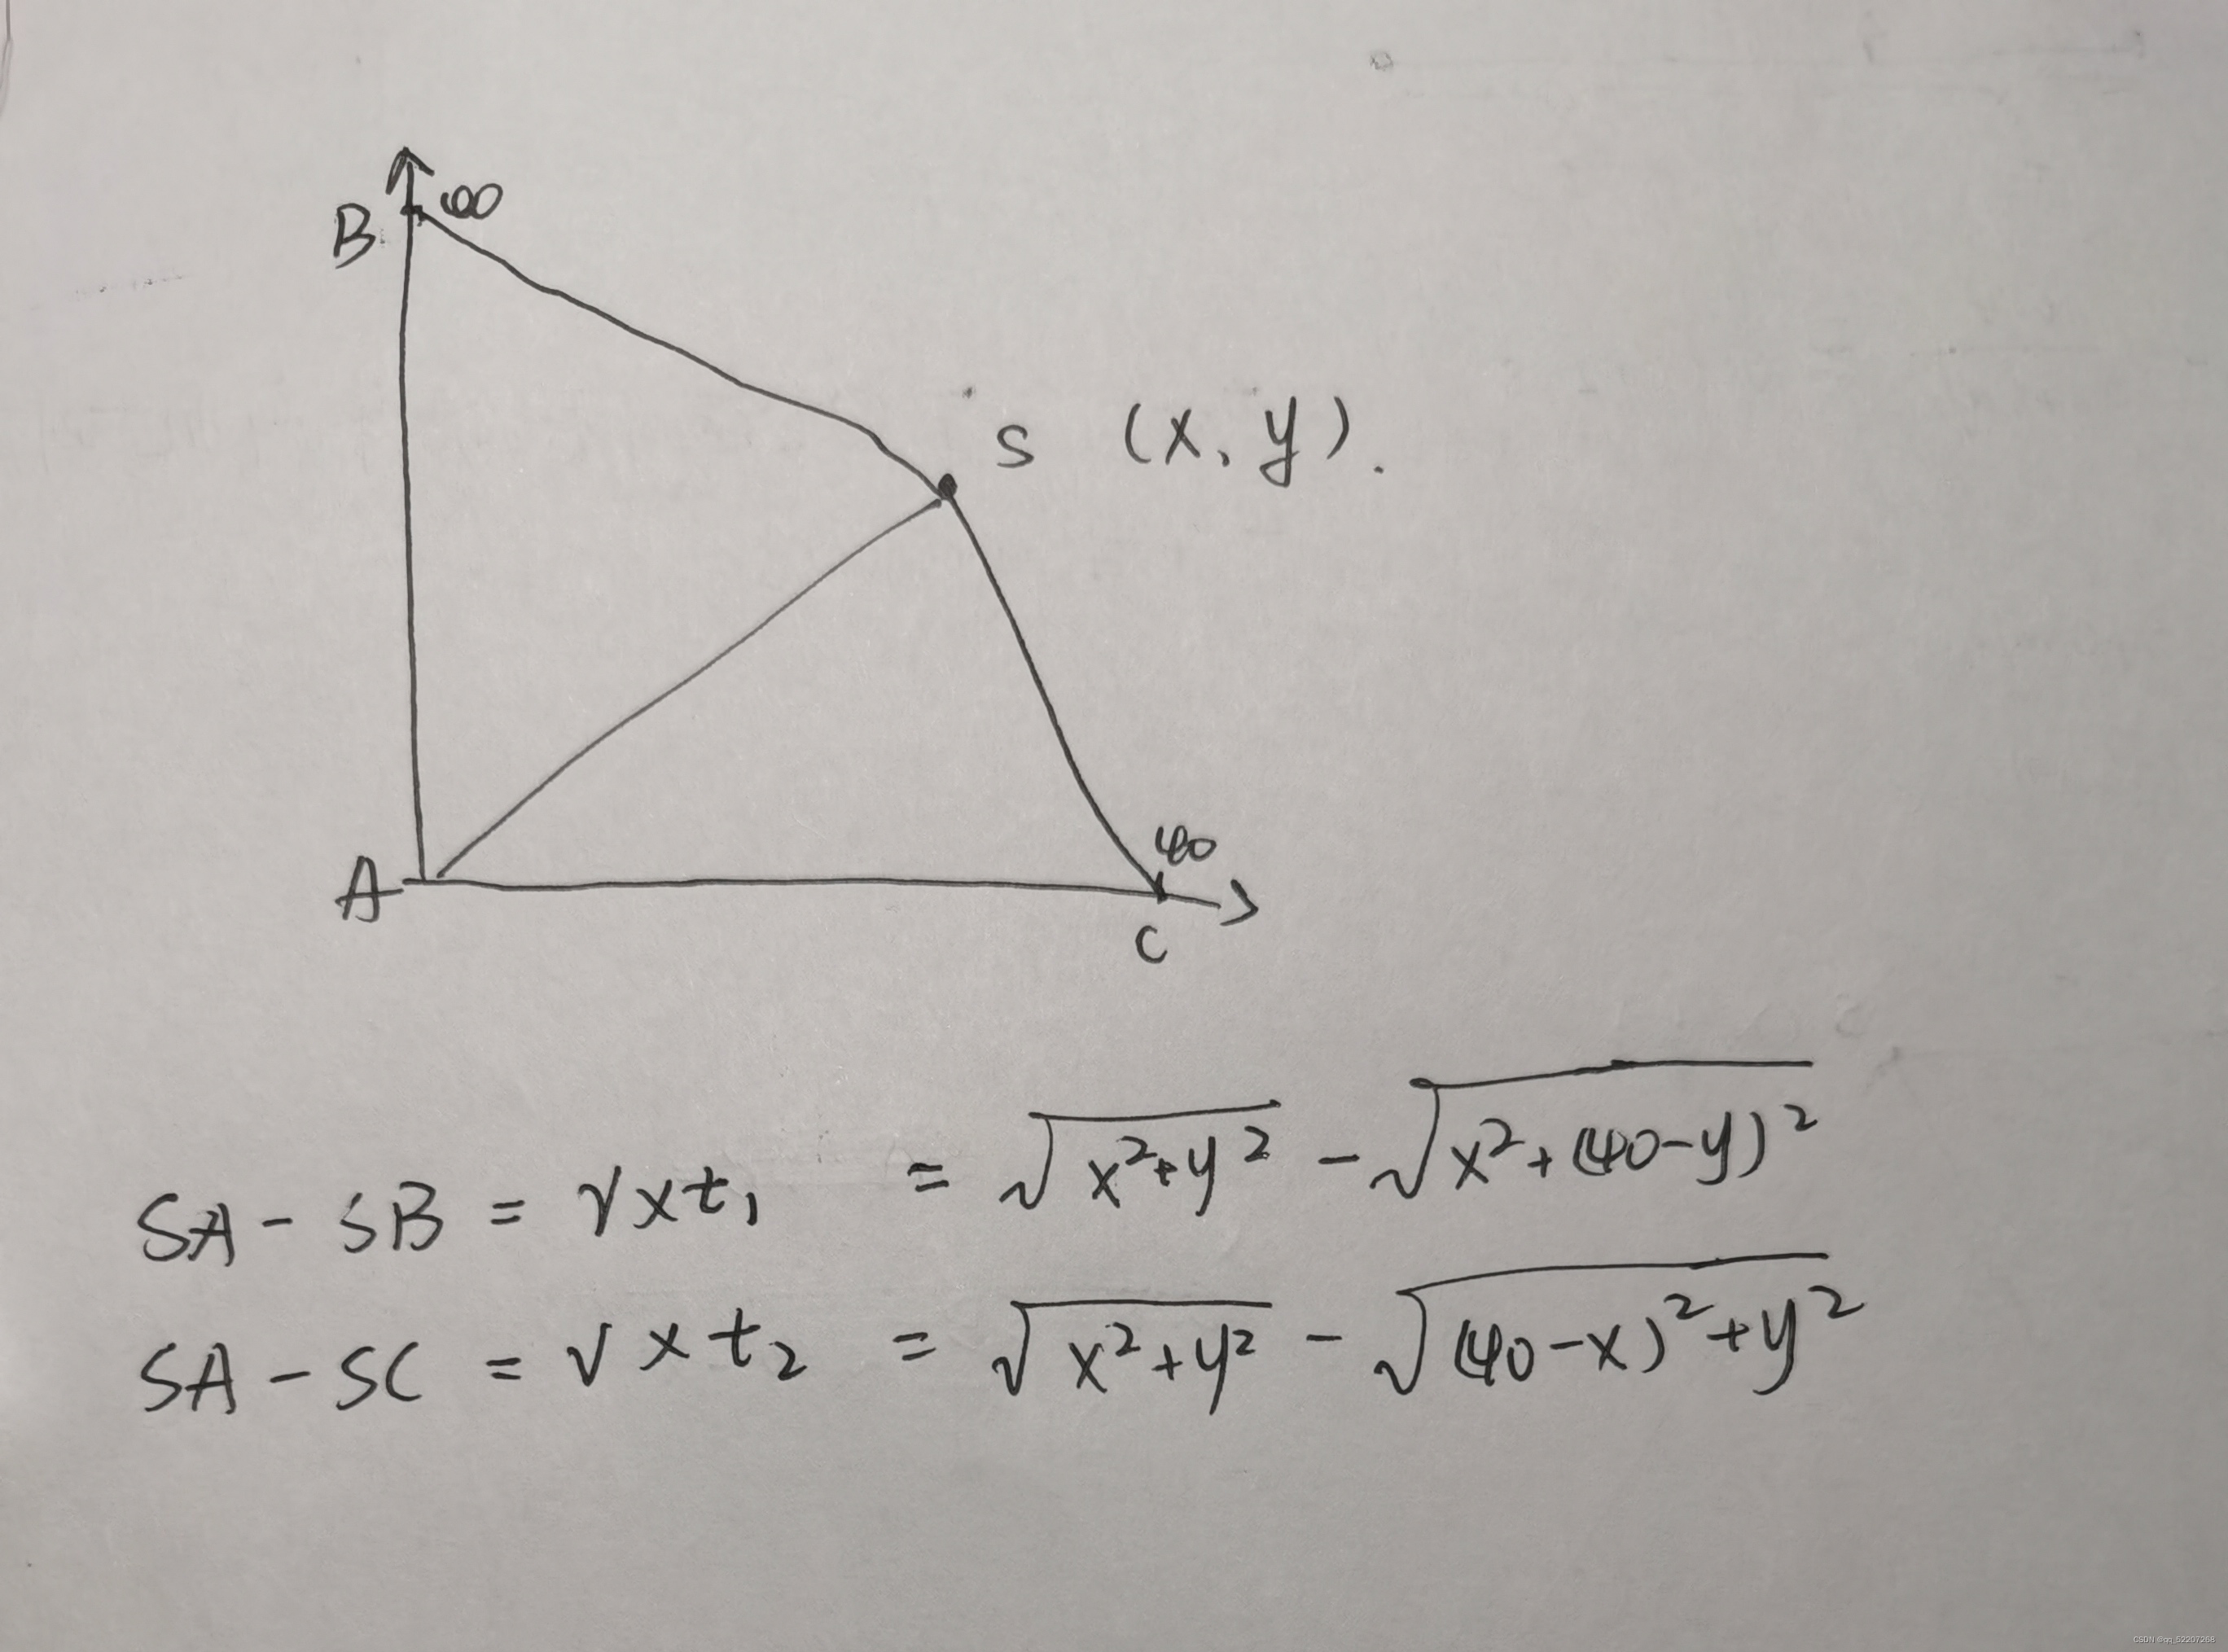 B 40
S (x, y).
A
40
C
SA - SB = v x t₁ = √(x²+y²) - √(x²+(40-y)²)
SA - SC = v x t₂ = √(x²+y²) - √((40-x)²+y²)
CSDN @qq_52207268